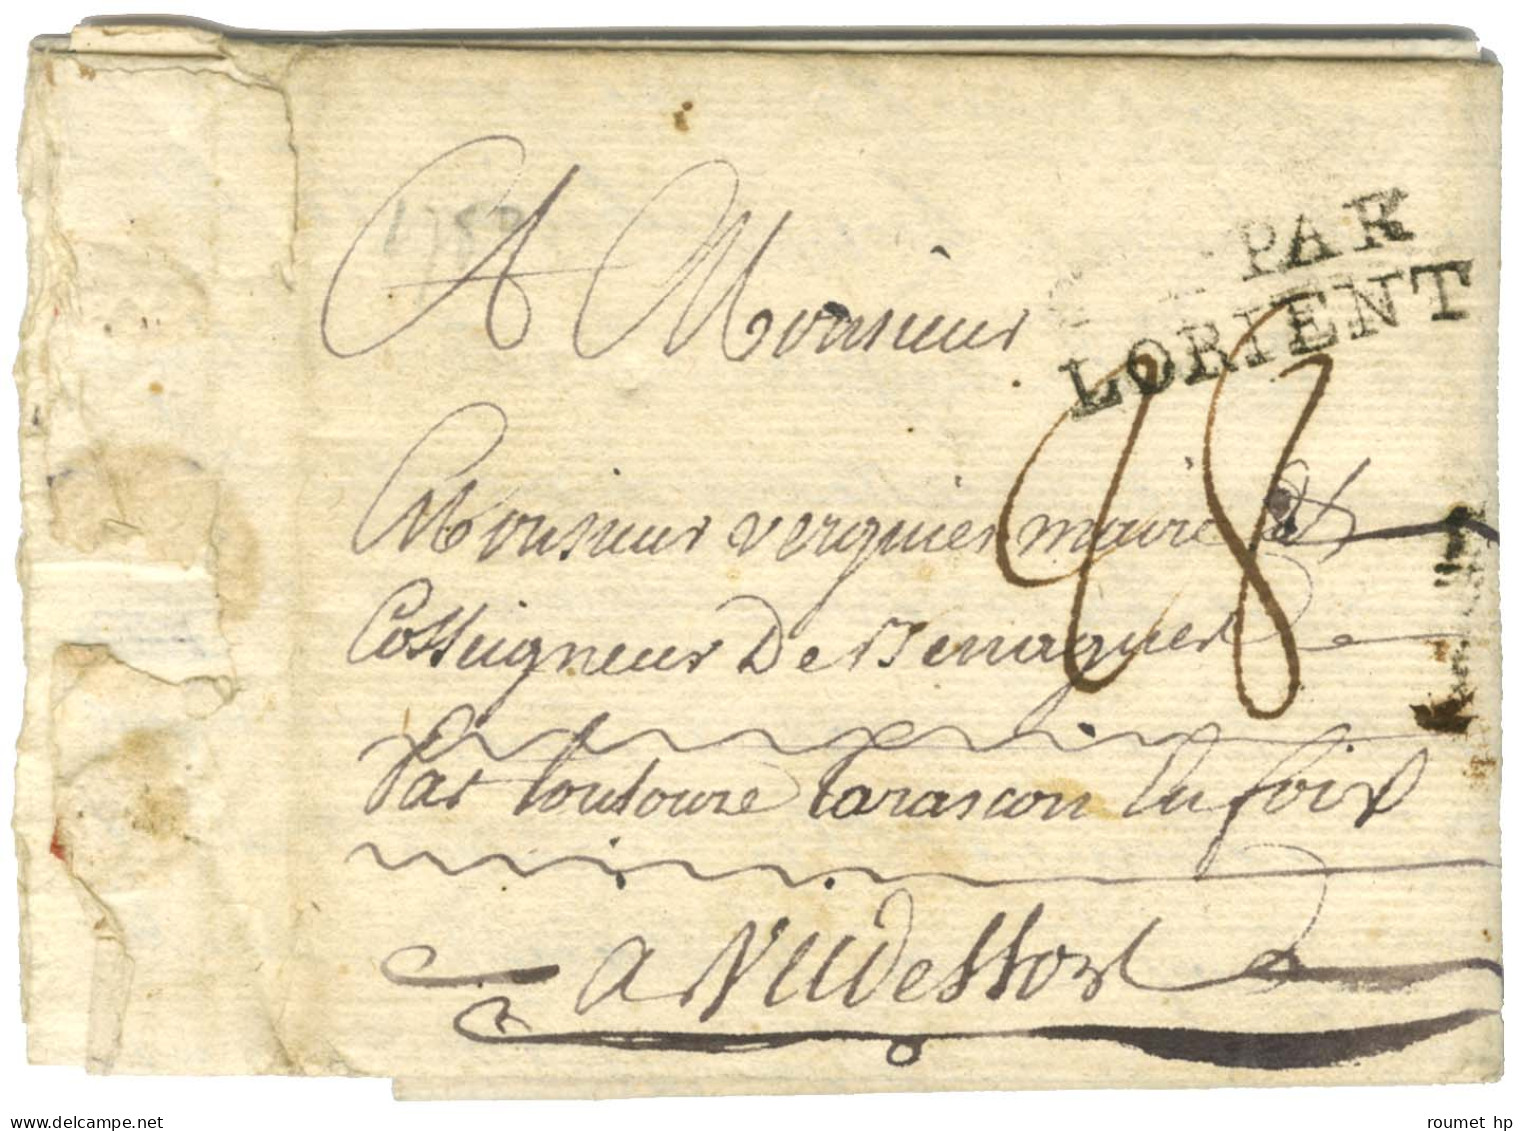 A Monsieur
PAR
LORIENT
28
Monsieur vergnies maire et
Cosseigneur De
Par toulouze tarascon en foix
a Viidessos
delcampe.net
roumet hp